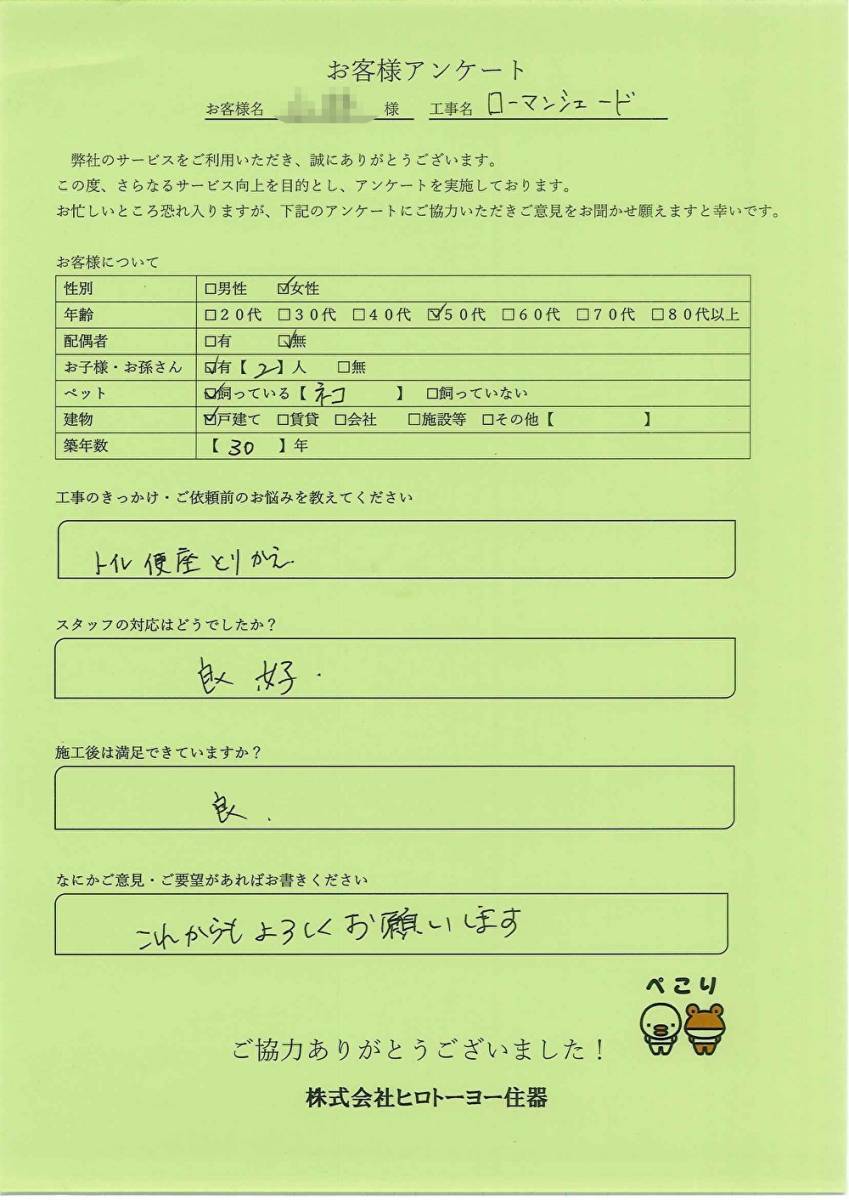 お客様アンケート
お客様名 様 工事名 ローマンシェード
弊社のサービスをご利用いただき、誠にありがとうございます。
この度、さらなるサービス向上を目的とし、アンケートを実施しております。
お忙しいところ恐れ入りますが、下記のアンケートにご協力いただきご意見をお聞かせ願えますと幸いです。
お客様について
性別 □男性 ☑女性
年齢 □20代 □30代 □40代 ☑50代 □60代 □70代 □80代以上
配偶者 □有 ☑無
お子様・お孫さん ☑有【 2 】人 □無
ペット ☑飼っている【 ネコ 】 □飼っていない
建物 ☑戸建て □賃貸 □会社 □施設等 □その他【 】
築年数 【 30 】年
工事のきっかけ・ご依頼前のお悩みを教えてください
トイレ便座とりかえ
スタッフの対応はどうでしたか？
良好.
施工後は満足できていますか？
良.
なにかご意見・ご要望があればお書きください
これからもよろしくお願いします
ぺこり
ご協力ありがとうございました！
株式会社ヒロトーヨー住器